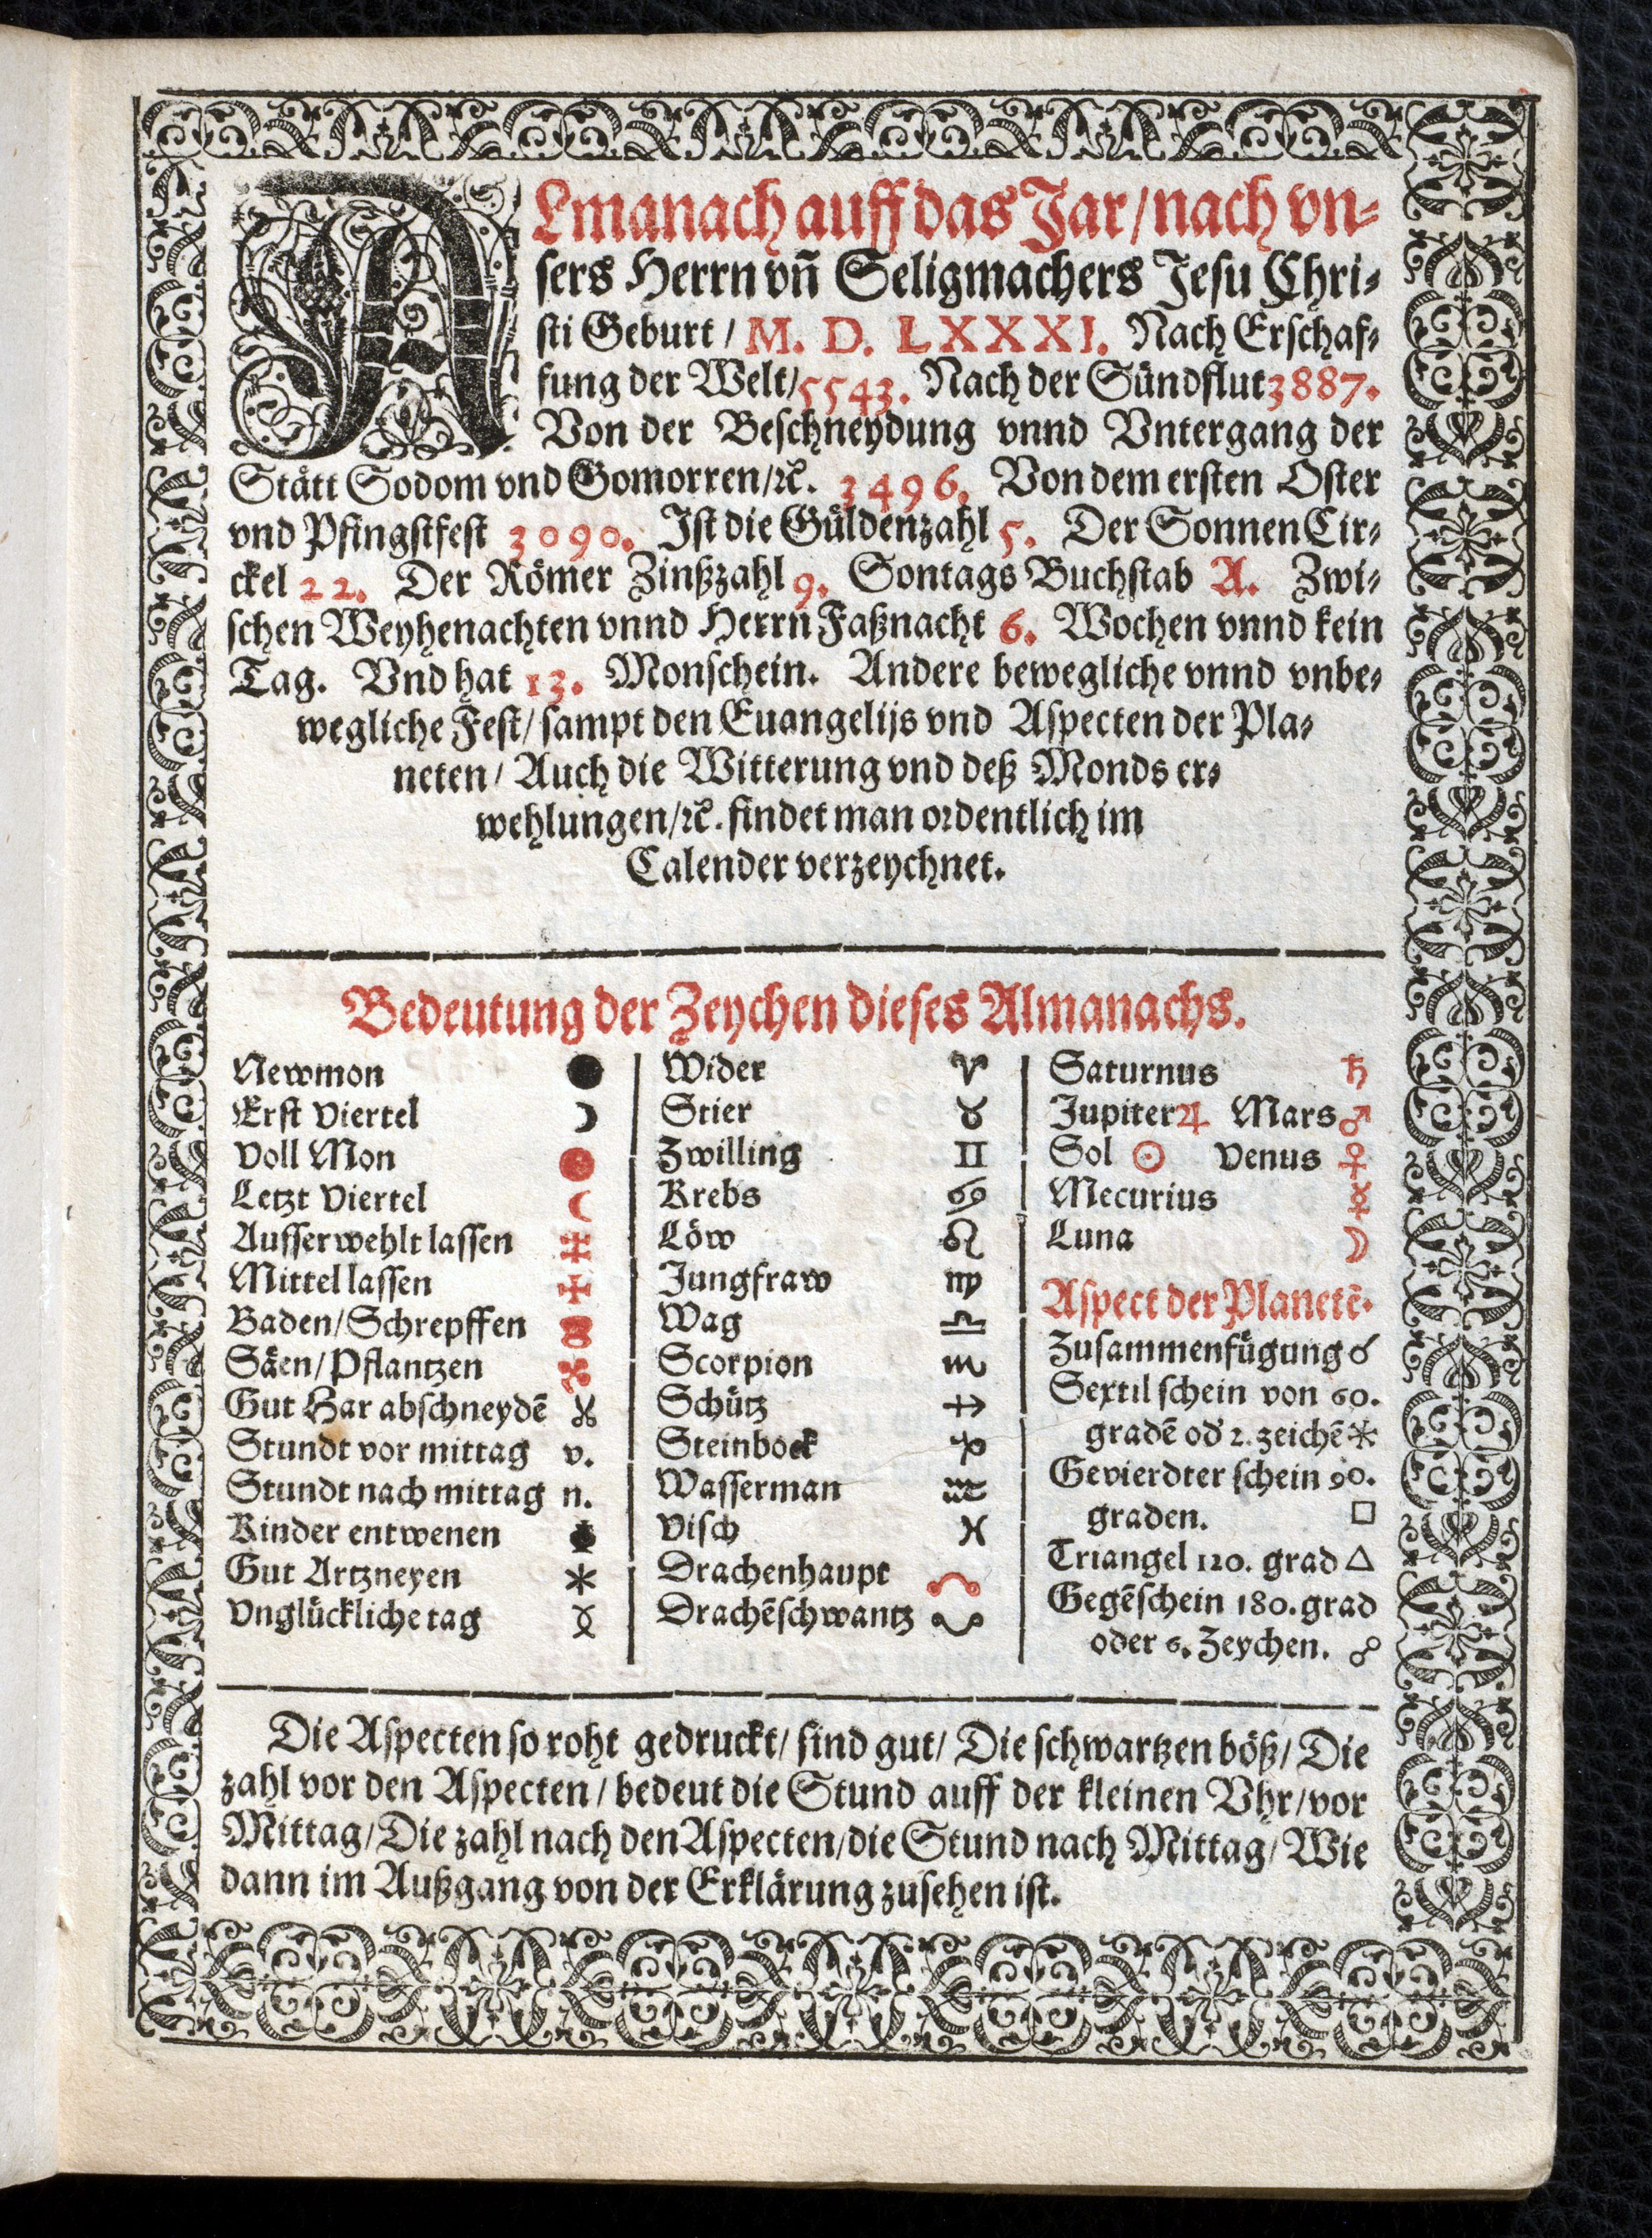 ALmanach auff das Jar/ nach vn-
sers Herrn vn̄ Seligmachers Jesu Chri-
sti Geburt/ M. D. LXXXI. Nach Erschaf-
fung der Welt/ 5543. Nach der Sündflut 3887.
Von der Beschneydung vnnd Vntergang der
Stätt Sodom vnd Gomorren/ ꝛc. 3496. Von dem ersten Oster
vnd Pfingstfest 3090. Ist die Güldenzahl 5. Der Sonnen Cir-
ckel 22. Der Römer Zinßzahl 9. Sontags Buchstab A. Zwi-
schen Weyhenachten vnnd Herrn Faßnacht 6. Wochen vnnd kein
Tag. Vnd hat 13. Monschein. Andere bewegliche vnnd vnbe-
wegliche Fest/ sampt den Euangelijs vnd Aspecten der Pla-
neten/ Auch die Witterung vnd deß Monds er-
wehlungen/ ꝛc. findet man ordentlich im
Calender verzeychnet.
Bedeutung der Zeychen dieses Almanachs.
Newmon ●
Erst Viertel ☽
Voll Mon ●
Letzt Viertel ☾
Ausserwehlt lassen ‡
Mittel lassen ✢
Baden/ Schrepffen
Säen/ Pflantzen
Gut Har abschneydē ✂
Stundt vor mittag v.
Stundt nach mittag n.
Kinder entwenen
Gut Artzneyen *
Vnglückliche tag
Wider ♈
Stier ♉
Zwilling ♊
Krebs ♋
Löw ♌
Jungfraw ♍
Wag ♎
Scorpion ♏
Schütz ♐
Steinbock ♑
Wasserman ♒
Visch ♓
Drachenhaupt ☊
Drachēschwantz ☋
Saturnus ♄
Jupiter ♃ Mars ♂
Sol ☉ Venus ♀
Mecurius ☿
Luna ☽
Aspect der Planetē.
Zusammenfügung ☌
Sextil schein von 60.
gradē od' 2. zeichē *
Gevierdter schein 90.
graden. □
Triangel 120. grad △
Gegēschein 180. grad
oder 6. Zeychen. ☍
Die Aspecten so roht gedruckt/ sind gut/ Die schwartzen böß/ Die
zahl vor den Aspecten/ bedeut die Stund auff der kleinen Vhr/ vor
Mittag/ Die zahl nach den Aspecten/ die Stund nach Mittag/ Wie
dann im Außgang von der Erklärung zusehen ist.